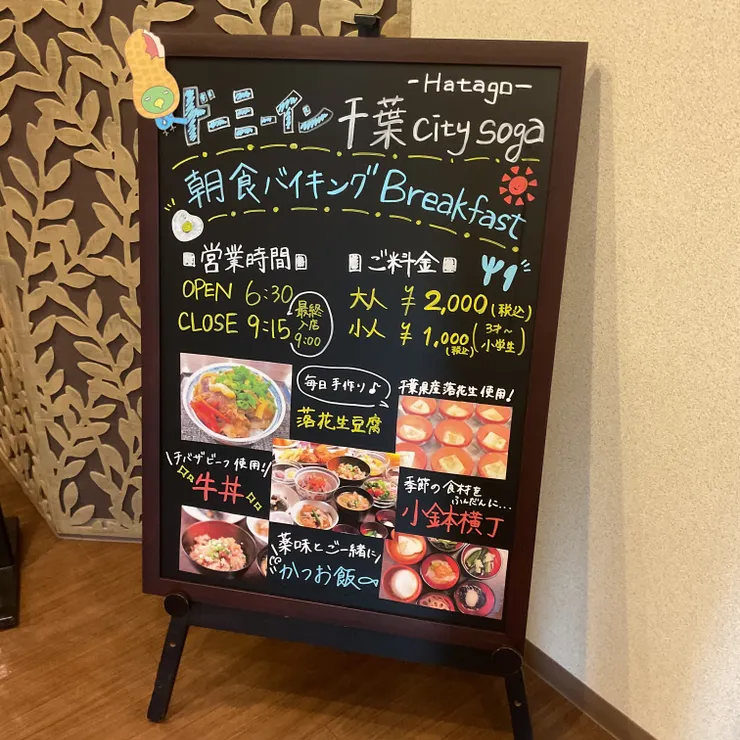 -Hatago-
ドーミーイン千葉 City Soga
朝食バイキング Breakfast
営業時間
OPEN 6:30
CLOSE 9:15
最終
入店
9:00
ご料金
大人 ¥2,000(税込)
小人 ¥1,000(税込)(3才~小学生)
毎日手作り♪
落花生豆腐
千葉県産落花生使用!
\チバザビーフ使用!/
牛丼
季節の食材を
ふんだんに...
小鉢横丁
薬味とご一緒に
かつお飯